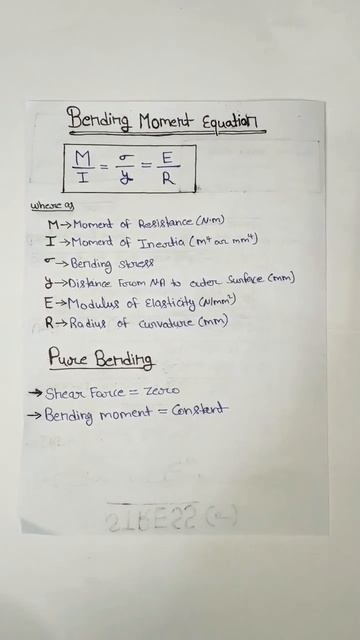 Bending Moment Equation
M/I = σ/y = E/R
where as
M→Moment of Resistance (N·m)
I→Moment of Inertia (m⁴ or mm⁴)
σ→Bending stress
y→Distance From NA to outer Surface (mm)
E→Modulus of Elasticity (N/mm²)
R→Radius of curvature (mm)
Pure Bending
→Shear Force = Zero
→Bending moment = Constant
STRESS (σ)